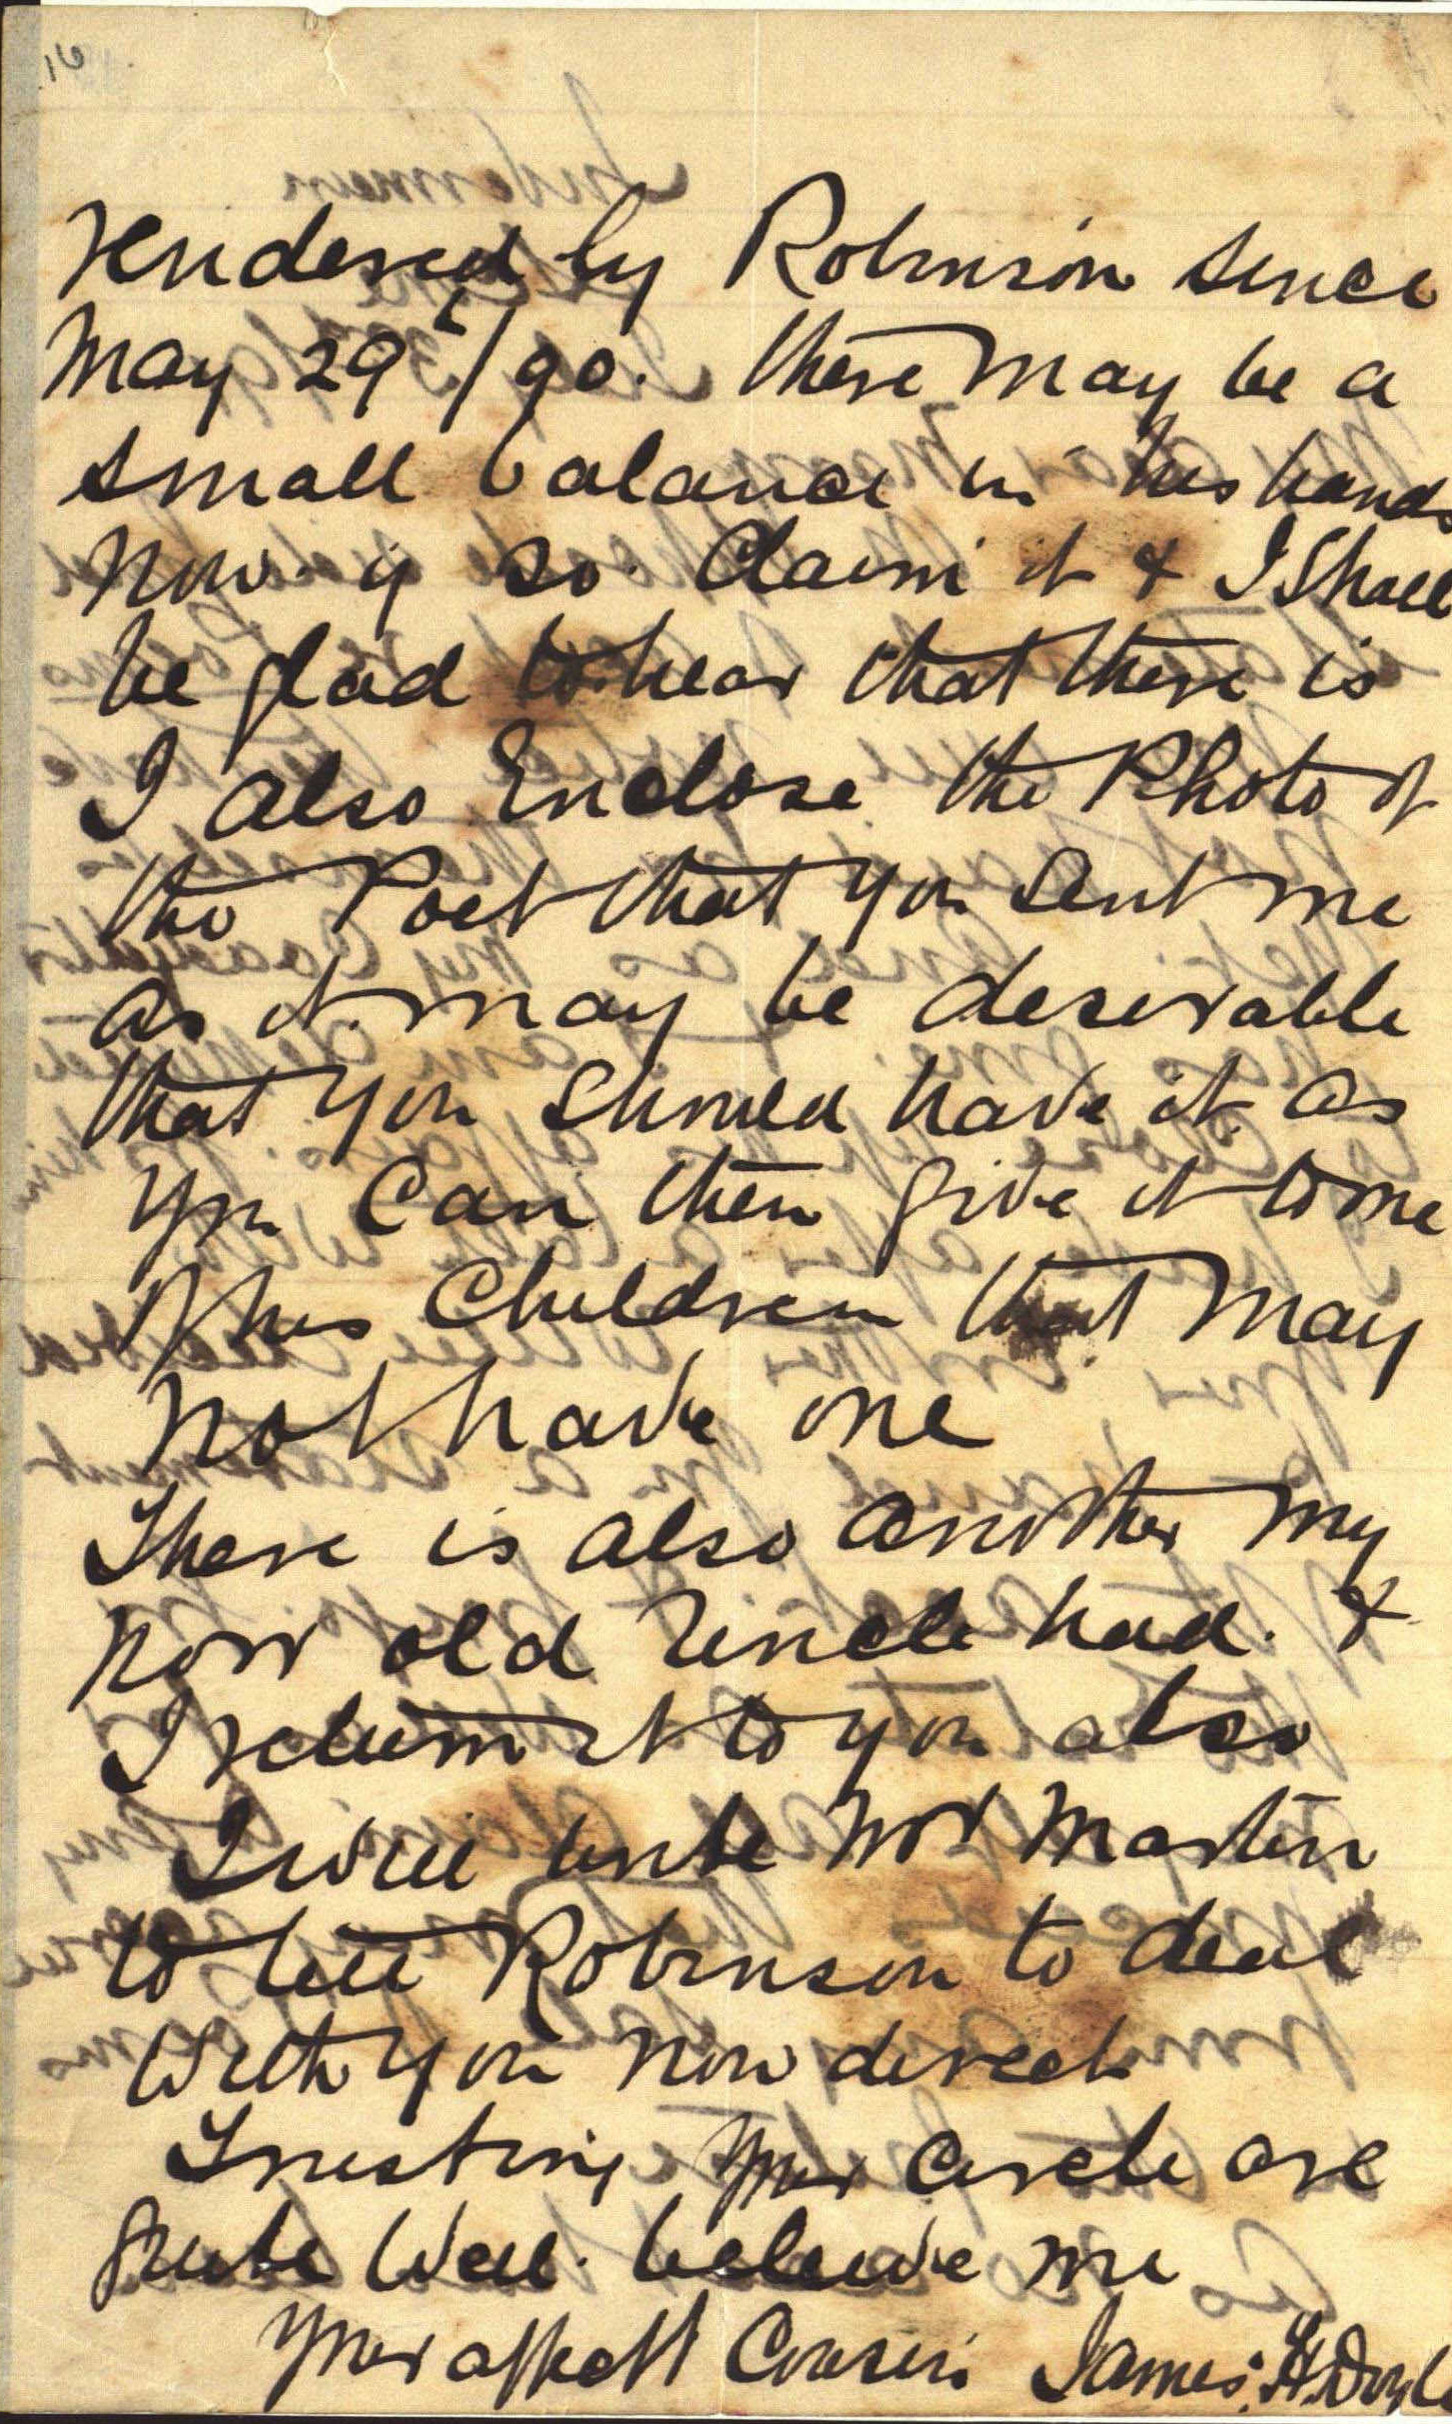 16
rendered by Robinson since
May 29t/90. there may be a
small balance in his hands
now. if so. Claim it & I Shall
be glad to hear that there is
I also Enclose the Photo of
the Poet that you sent me
as it may be desirable
that you should have it. as
you can then give it to one
of his Children that may
not have one
There is also another my
poor old Uncle had. &
I return it to you also
I will write Mr Martin
to tell Robinson to deal
with you now direct
Trusting your circle are
quite well. believe me
your affectt Cousin James. H. Doyle